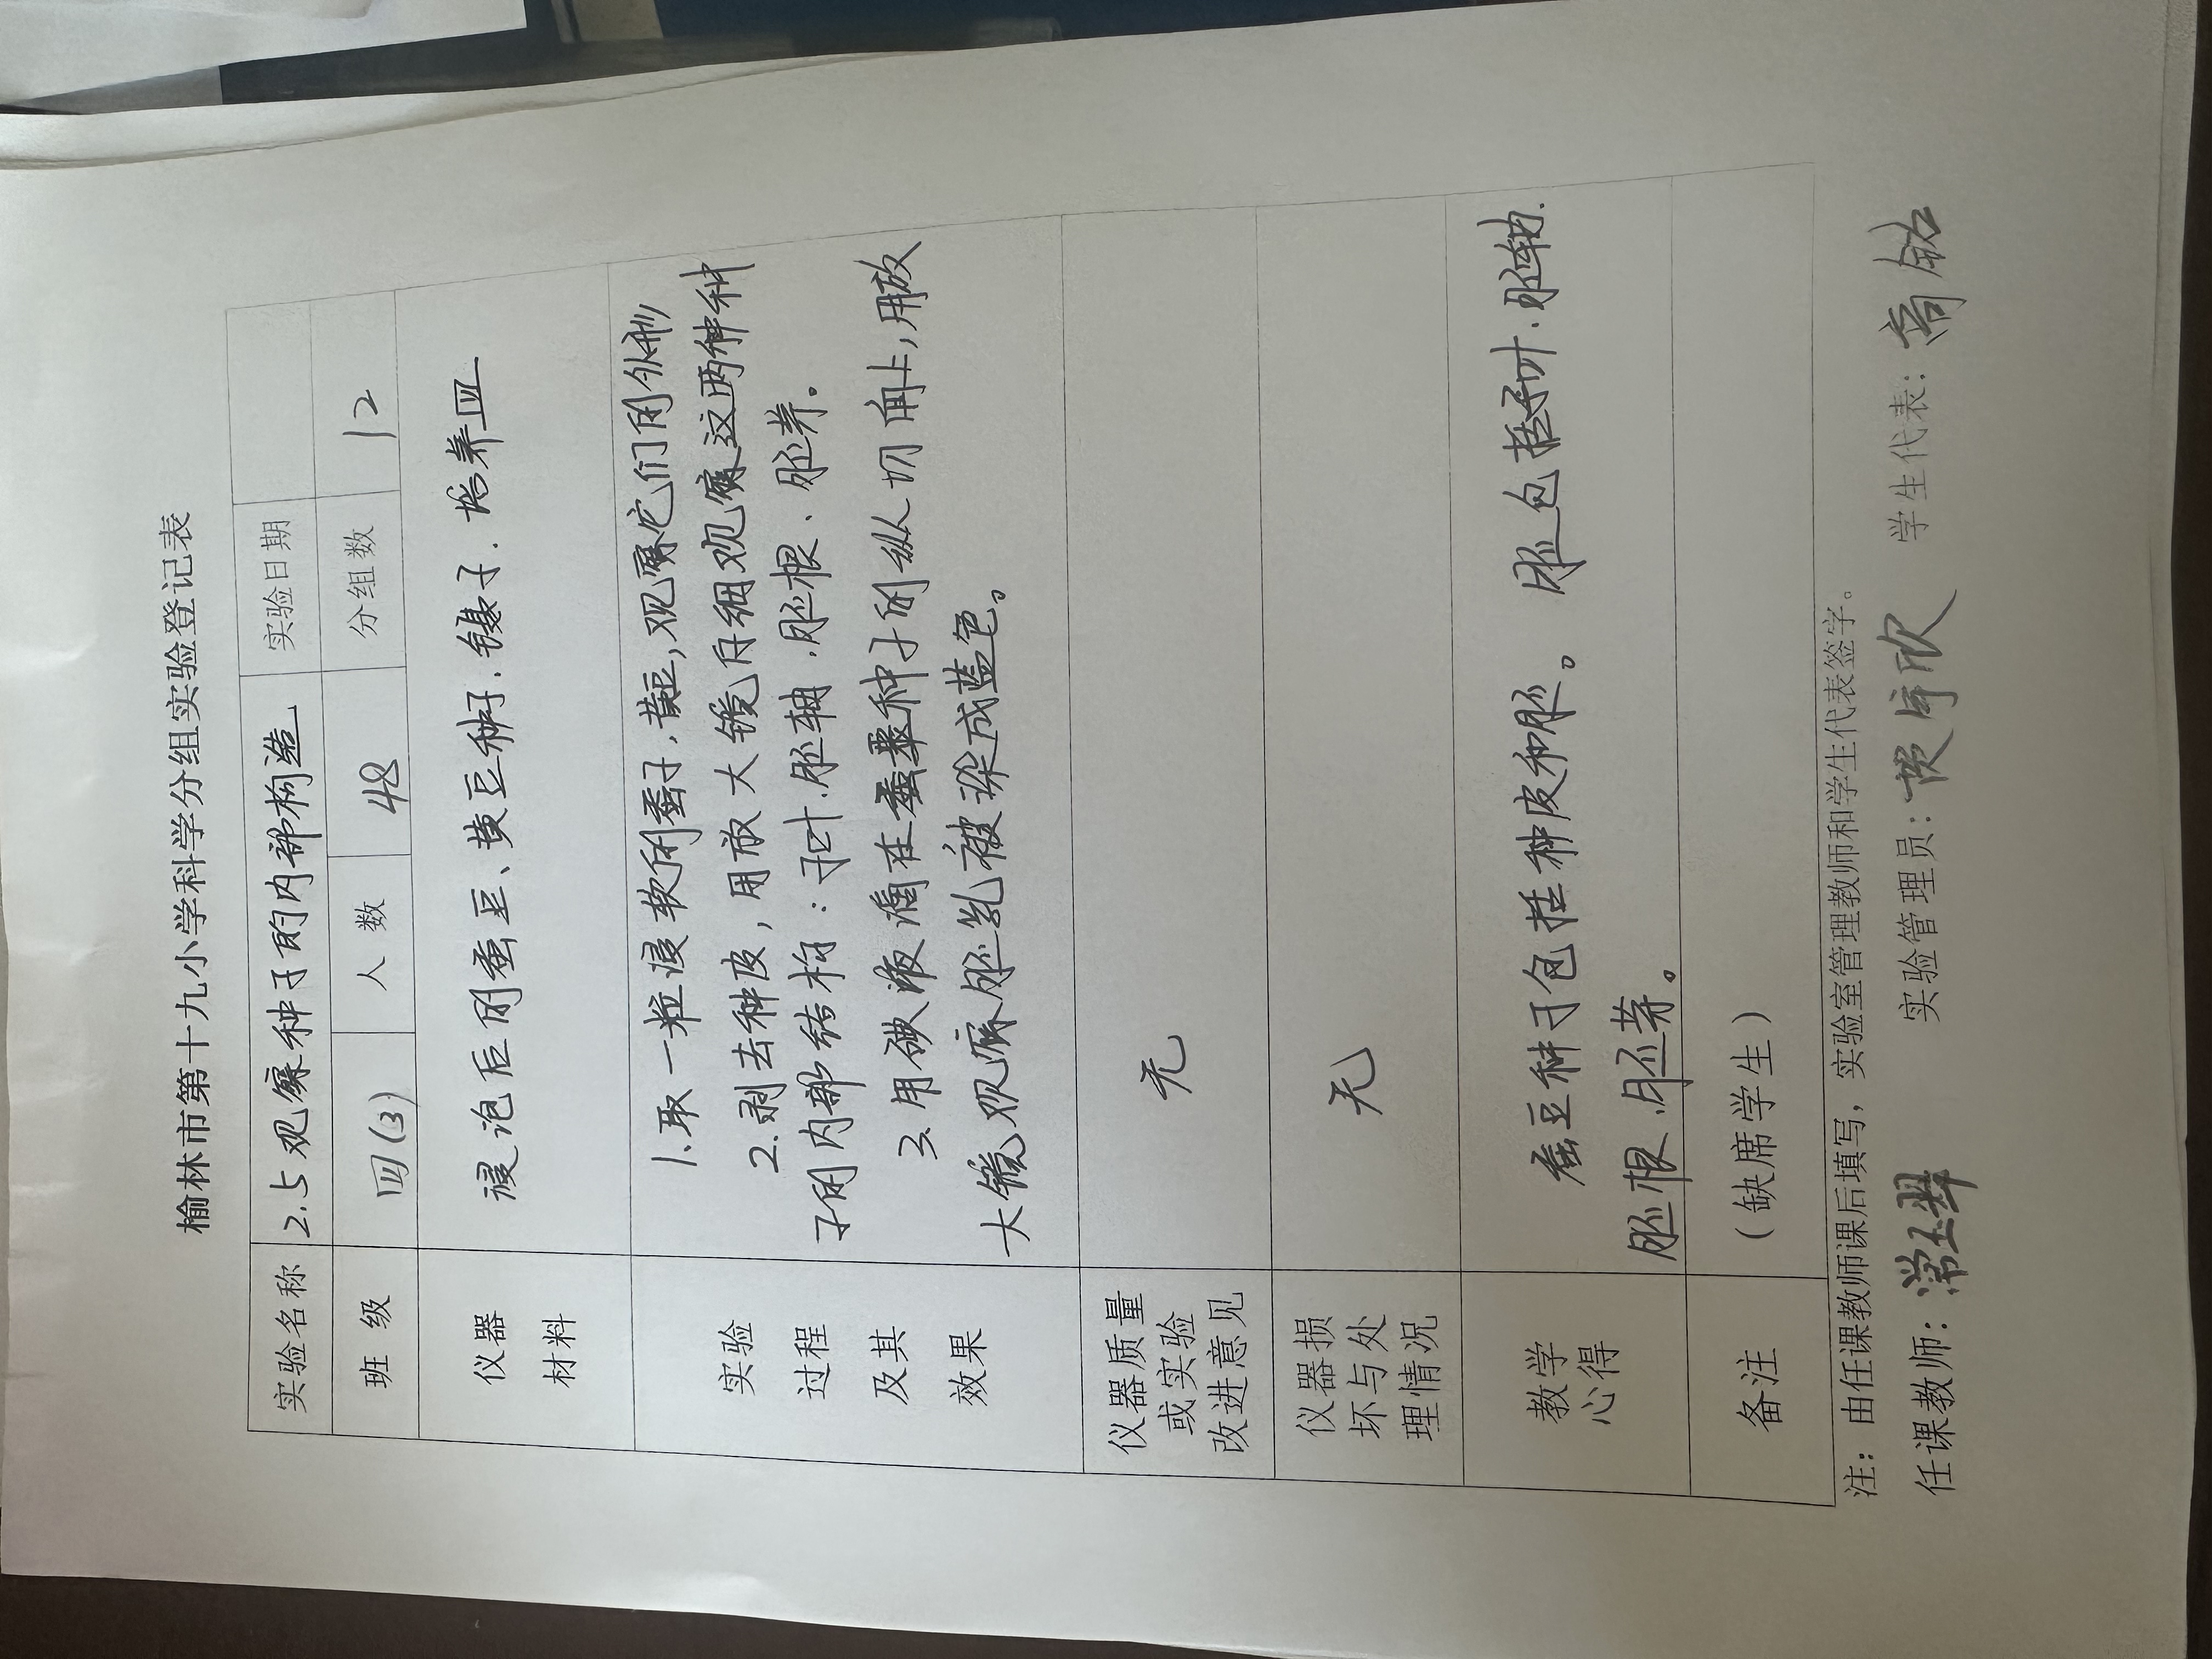 榆林市第十九小学科学分组实验登记表
实验名称 2.5 观察种子的内部构造 实验日期
班 级 四(3) 人 数 48 分组数 12
仪器 材料 浸泡后的蚕豆、黄豆种子.镊子.培养皿
实验 过程 及其 效果
1.取一粒浸软的蚕子,黄豆,观察它们的外形
2.剥去种皮,用放大镜仔细观察这两种种
子的内部结构:子叶.胚轴.胚根、胚芽。
3.用碘液滴在玉米种子的纵切面上,用放
大镜观察胚乳被染成蓝色。
仪器质量
或实验
改进意见
无
仪器损
坏与处
理情况
无
教学
心得
蚕豆种子包括种皮和胚。胚包括子叶.胚轴.
胚根.胚芽。
备注 (缺席学生)
注:由任课教师课后填写,实验室管理教师和学生代表签字。
任课教师: 实验管理员: 学生代表: